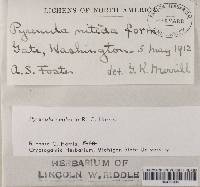 LICHENS OF NORTH AMERICA
Pyrenula nitida form
Gate, Washington. 5 May 1912
A. S. Foster det. G. K. Merrill
Pyrenula
R. C. Harris
Cryptogamic Herbarium, Michigan State University
HERBARIUM OF
LINCOLN W. RIDDLE